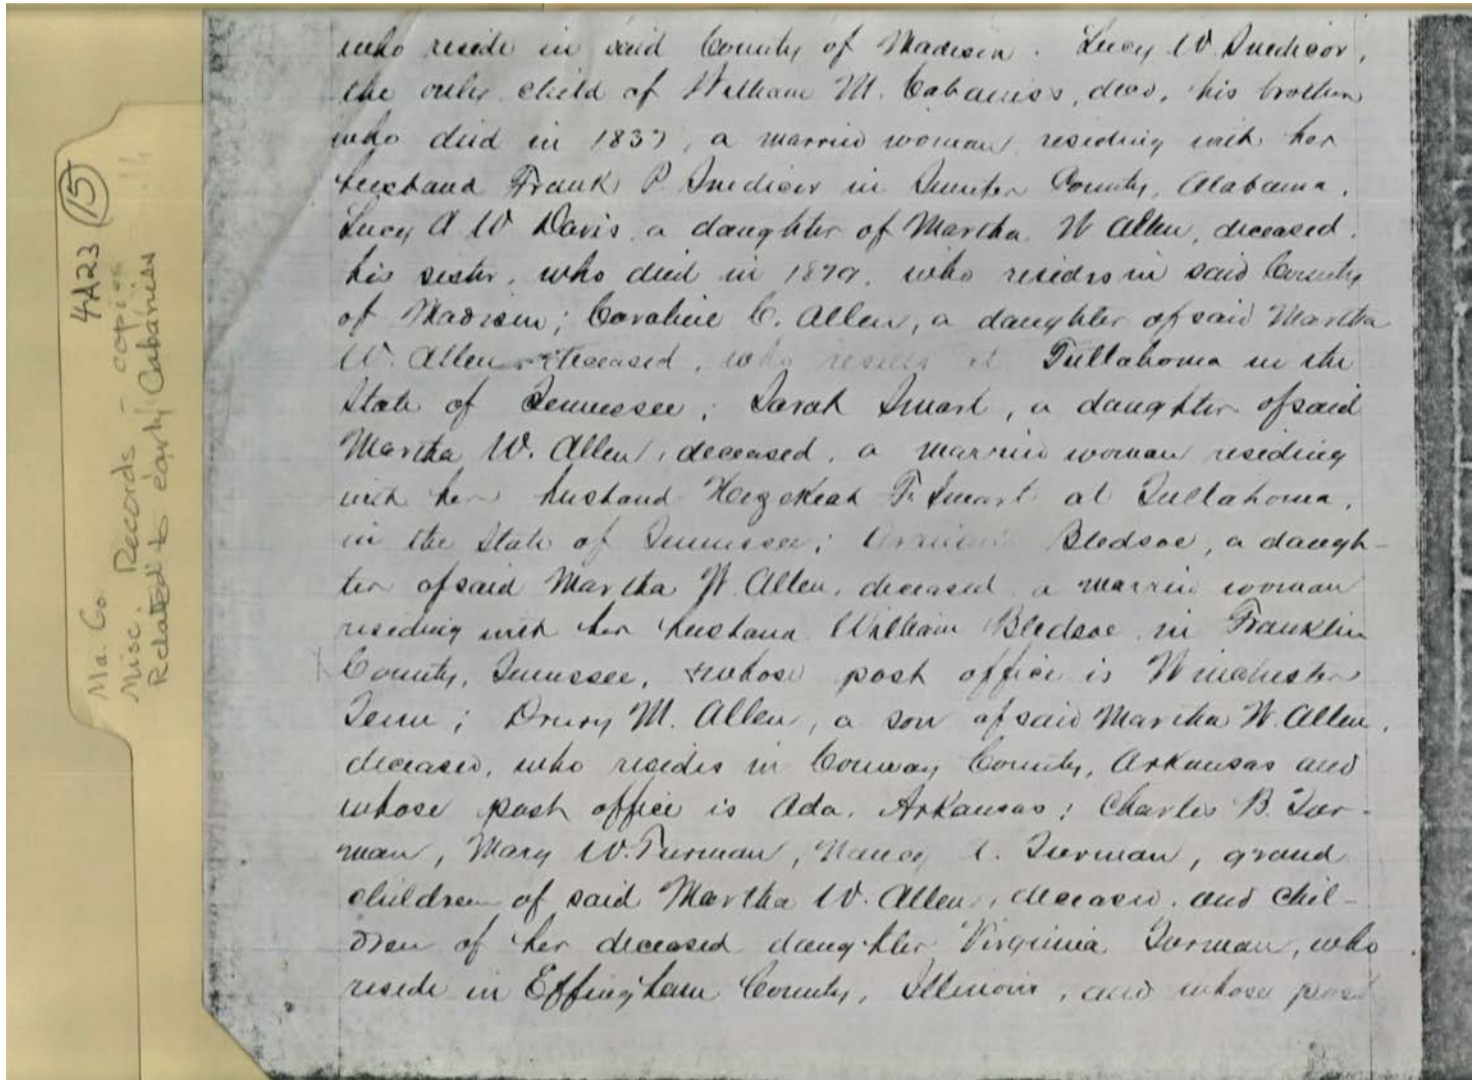 4A23 (15)
Ma. Co.
Misc. Records - copies
Related to early Cabaniss !!
who reside in said County of Madison. Lucy W. Snedicor,
the only child of William M. Cabaniss, decd, his brother
who died in 1837, a married woman residing with her
husband Frank P. Snedicor in Sumter County, Alabama.
Lucy A W Davis a daughter of Martha W Allen, deceased.
his sister, who died in 1879, who resides in said County
of Madison; Caroline C. Allen, a daughter of said Martha
W. Allen deceased, who resides at Tullahoma in the
State of Tennessee; Sarah Smart, a daughter of said
Martha W. Allen, deceased, a married woman residing
with her husband Hezekeah F. Smart at Tullahoma,
in the State of Tennessee; Bledsoe, a daugh-
ter of said Martha W. Allen, deceased a married woman
residing with her husband William Bledsoe in Franklin
County, Tennessee, whose post office is Winchester
Tenn; Drury M. Allen, a son of said Martha W. Allen,
deceased, who resides in Conway County, Arkansas and
whose post office is Ada, Arkansas; Charles B. Tur-
man, Mary W. Turman, Nancy Turman, grand
children of said Martha W. Allen, deceased, and chil-
dren of her deceased daughter Virginia Turman, who
reside in Effingham County, Illinois, and whose post